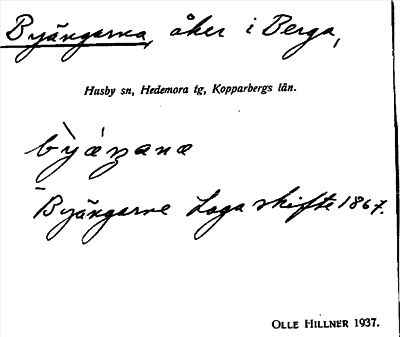 Byängarna, åker i Berga,
Husby sn, Hedemora tg, Kopparbergs län.
Byängarne Laga skifte 1867.
OLLE HILLNER 1937.